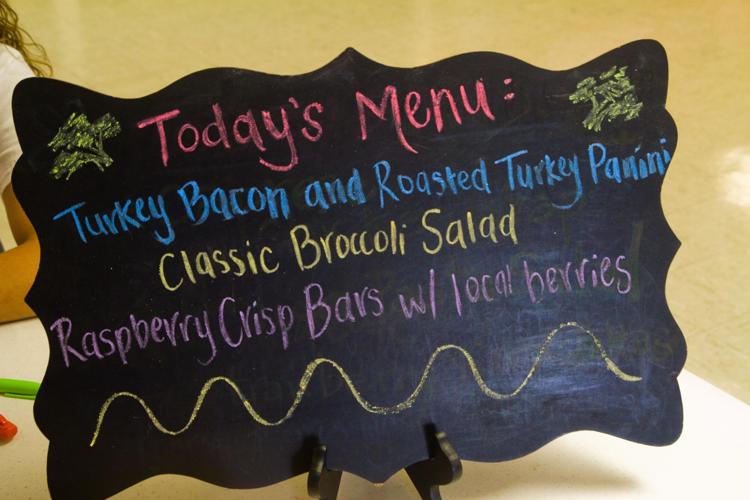 Today's Menu:
Turkey Bacon and Roasted Turkey Panini
Classic Broccoli Salad
Raspberry Crisp Bars w/ local berries